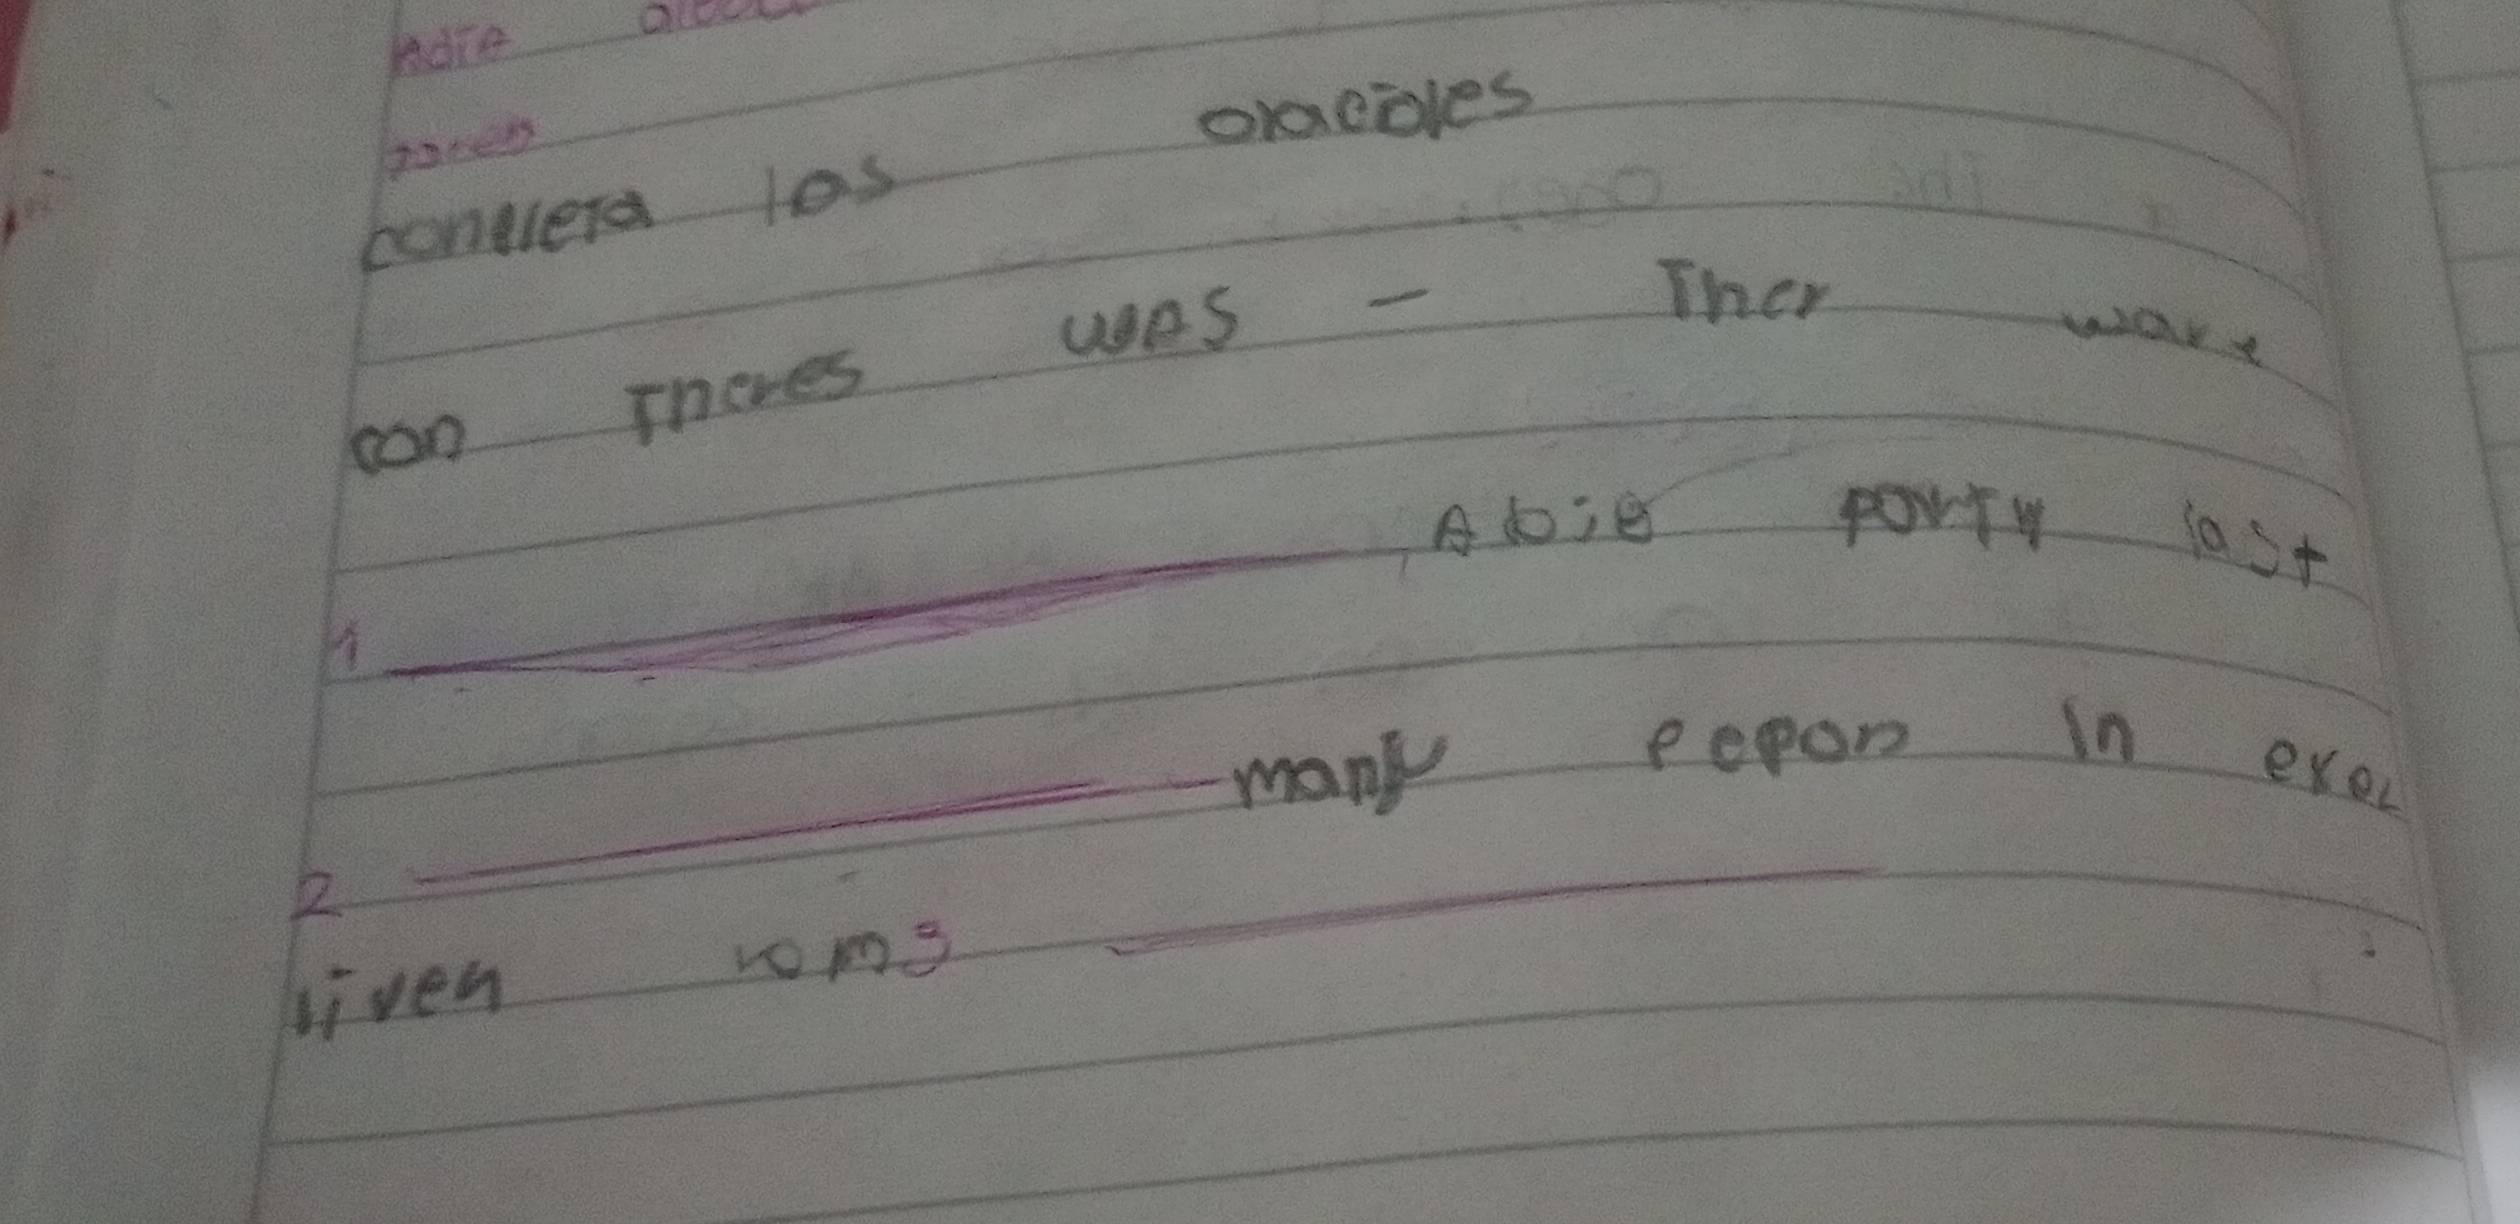 conplera las oraciones
con Theres was - Ther ware
1 A bie party last
2 many pepon in exel
liven roms